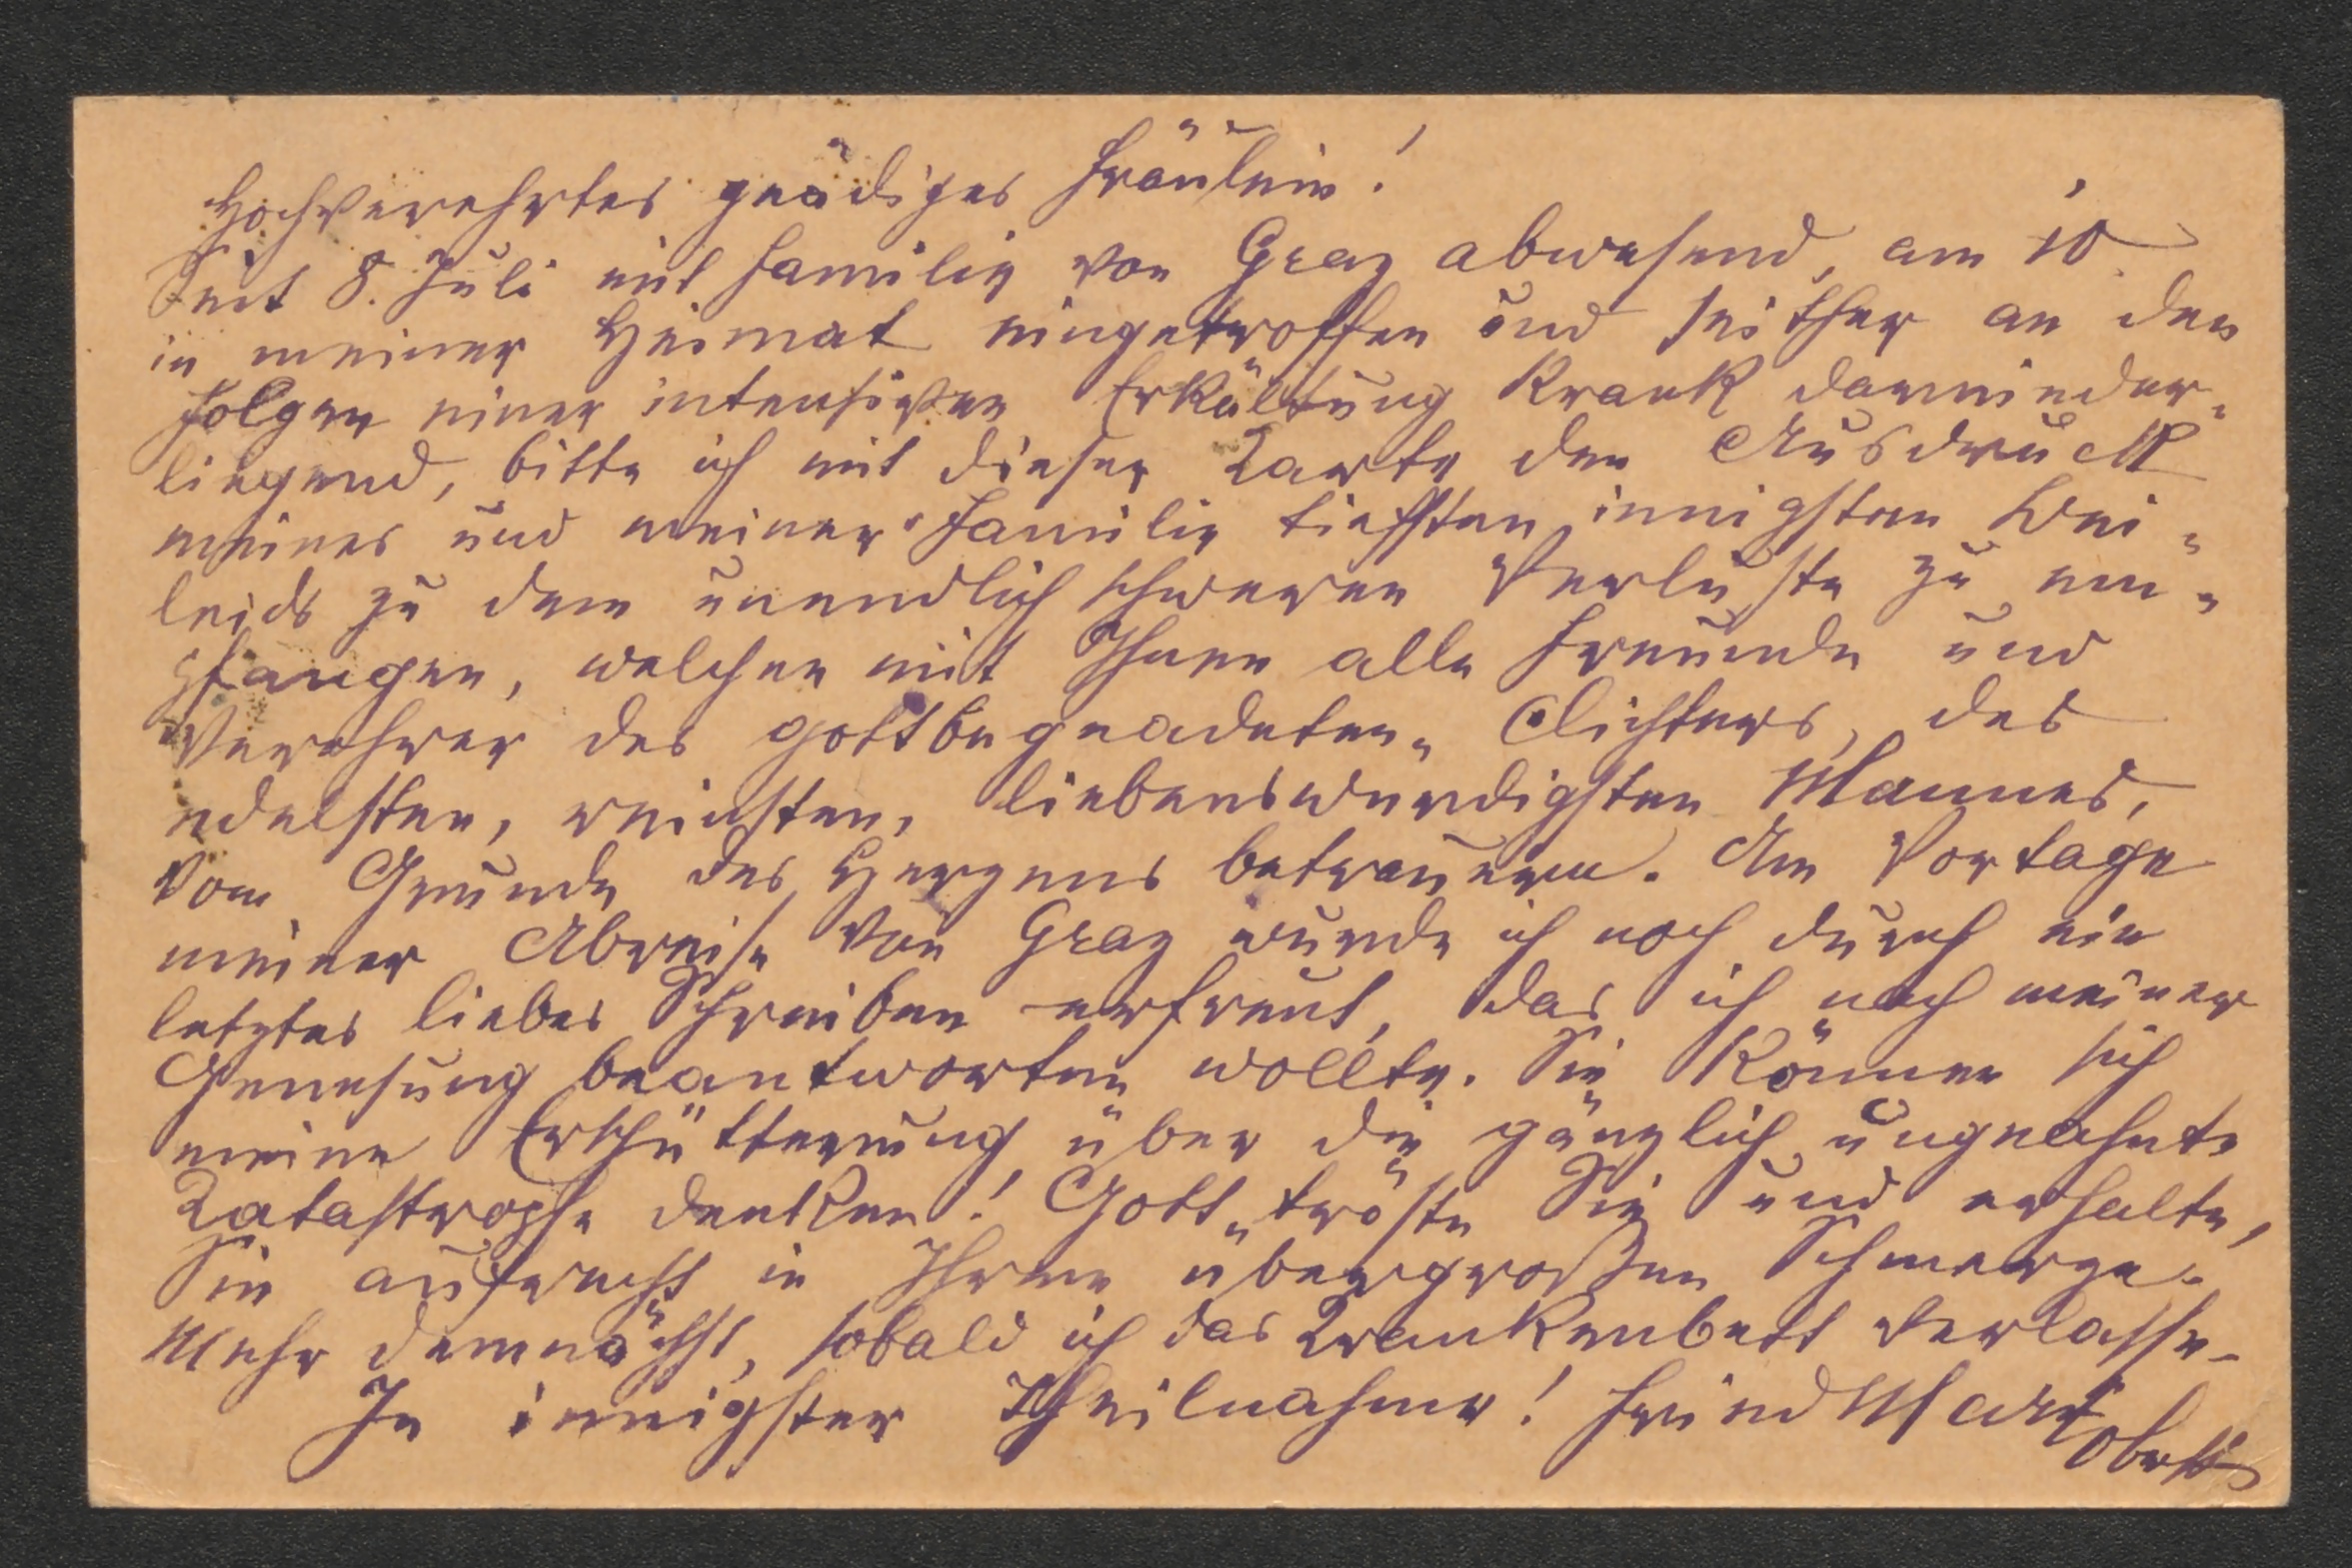 Hochverehrtes gnädiges Fräulein!
Seit 8. Juli mit Familie von Graz abwesend, am 10.
in meiner Heimat eingetroffen und seither an den
Folgen einer intensiven Erkältung krank darnieder-
liegend, bitte ich mit dieser Karte den Ausdruck
meines und meiner Familie tiefsten, innigsten Bei-
leids zu dem unendlich schweren Verluste zu em-
pfangen, welchen mit Ihnen alle Freunde und
Verehrer des gottbegnadeten Dichters, des
edelsten, reinsten, liebenswürdigsten Mannes,
vom Grunde des Herzens betrauern. Am Vortage
meiner Abreise von Graz wurde ich noch durch ein
letztes liebes Schreiben erfreut, das ich nach meiner
Genesung beantworten wollte. Sie können sich
meine Erschütterung über die gänzlich ungeahnte
Katastrophe denken! Gott tröste Sie und erhalte
Sie aufrecht in Ihrem übergroßen Schmerze.
Mehr demnächst, sobald ich das Krankenbett verlasse.
In innigster Theilnahme!
Oberst